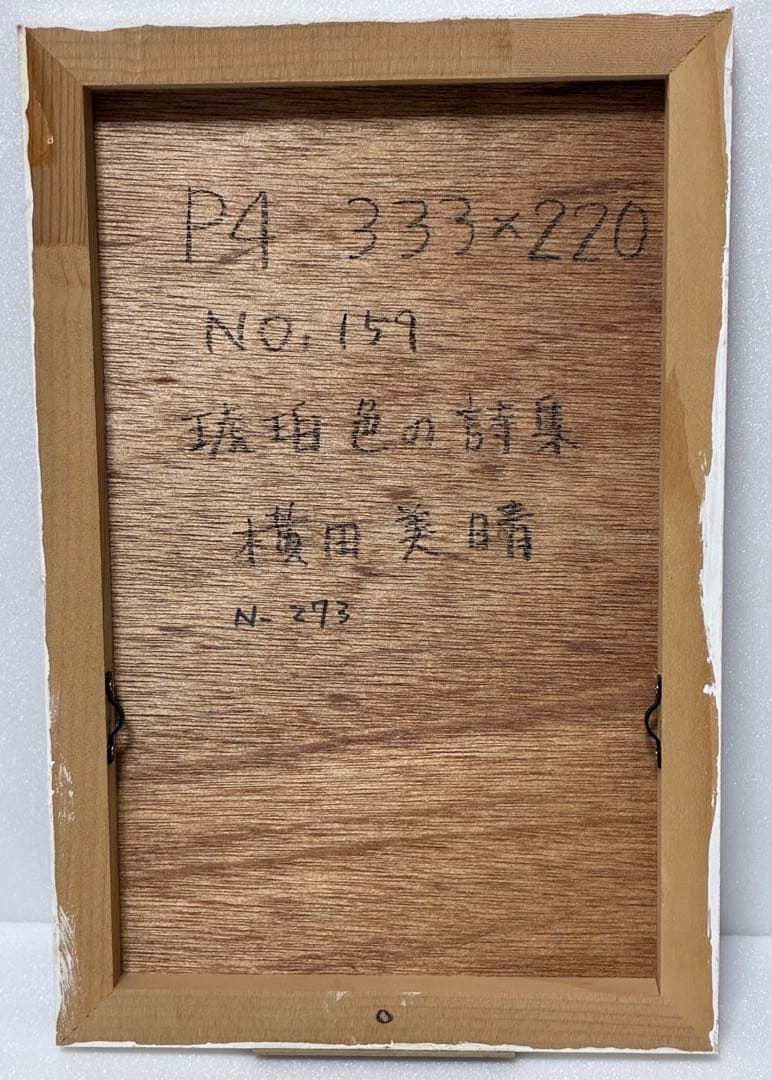 P4 333×220
NO. 159
琥珀色の詩集
横田美晴
N- 273
○